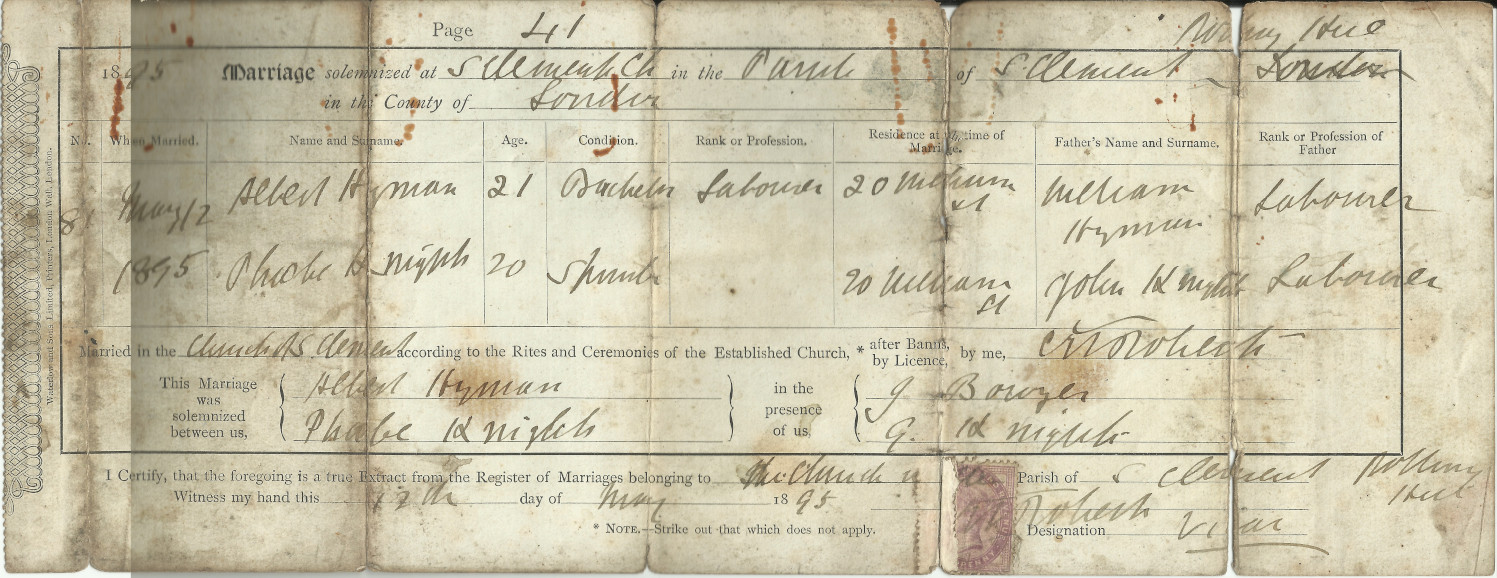 Page 41
Hill
1895 Marriage solemnized at S Clement Ch in the Parish of S Clement London
in the County of London
No. When Married. Name and Surname. Age. Condition. Rank or Profession. Residence at the time of Marriage. Father's Name and Surname. Rank or Profession of Father
81 May 12 Albert Hyman 21 Bachelor Labourer 20 William St William Hyman Labourer
1895 Phoebe Knights 20 Spinster 20 William St John Knights Labourer
Married in the Church of S Clement according to the Rites and Ceremonies of the Established Church, * after Banns, by Licence, by me, Roberts
This Marriage was solemnized between us, Albert Hyman in the presence of us, J Bowyer
Phoebe Knights G. Knights
I Certify, that the foregoing is a true Extract from the Register of Marriages belonging to the Church Parish of S Clement Notting Hill
Witness my hand this 12th day of May 1895 Roberts
* NOTE.—Strike out that which does not apply. Designation Vicar
Waterlow and Sons Limited, Printers, London Wall, London.